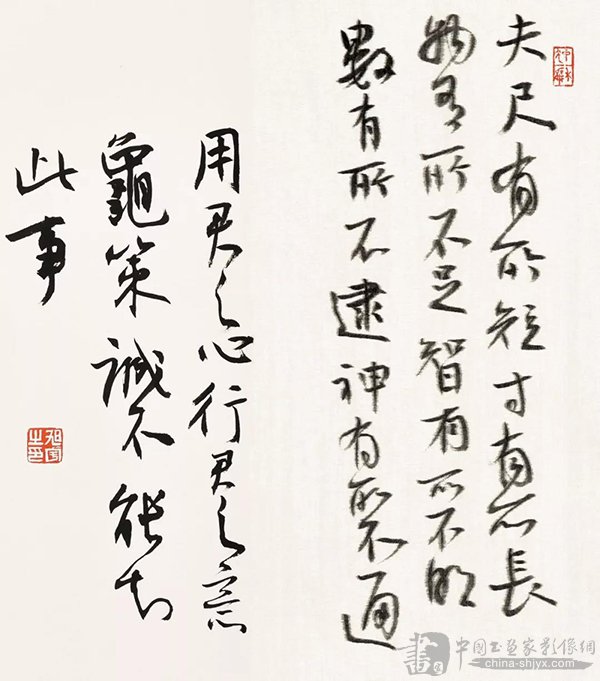 夫尺有所短寸有所長
物有所不足智有所不明
數有所不逮神有所不通
用君之心行君之意
龜策誠不能知
此事
旭宇之印
中国书画家影像網
china-shjyx.com